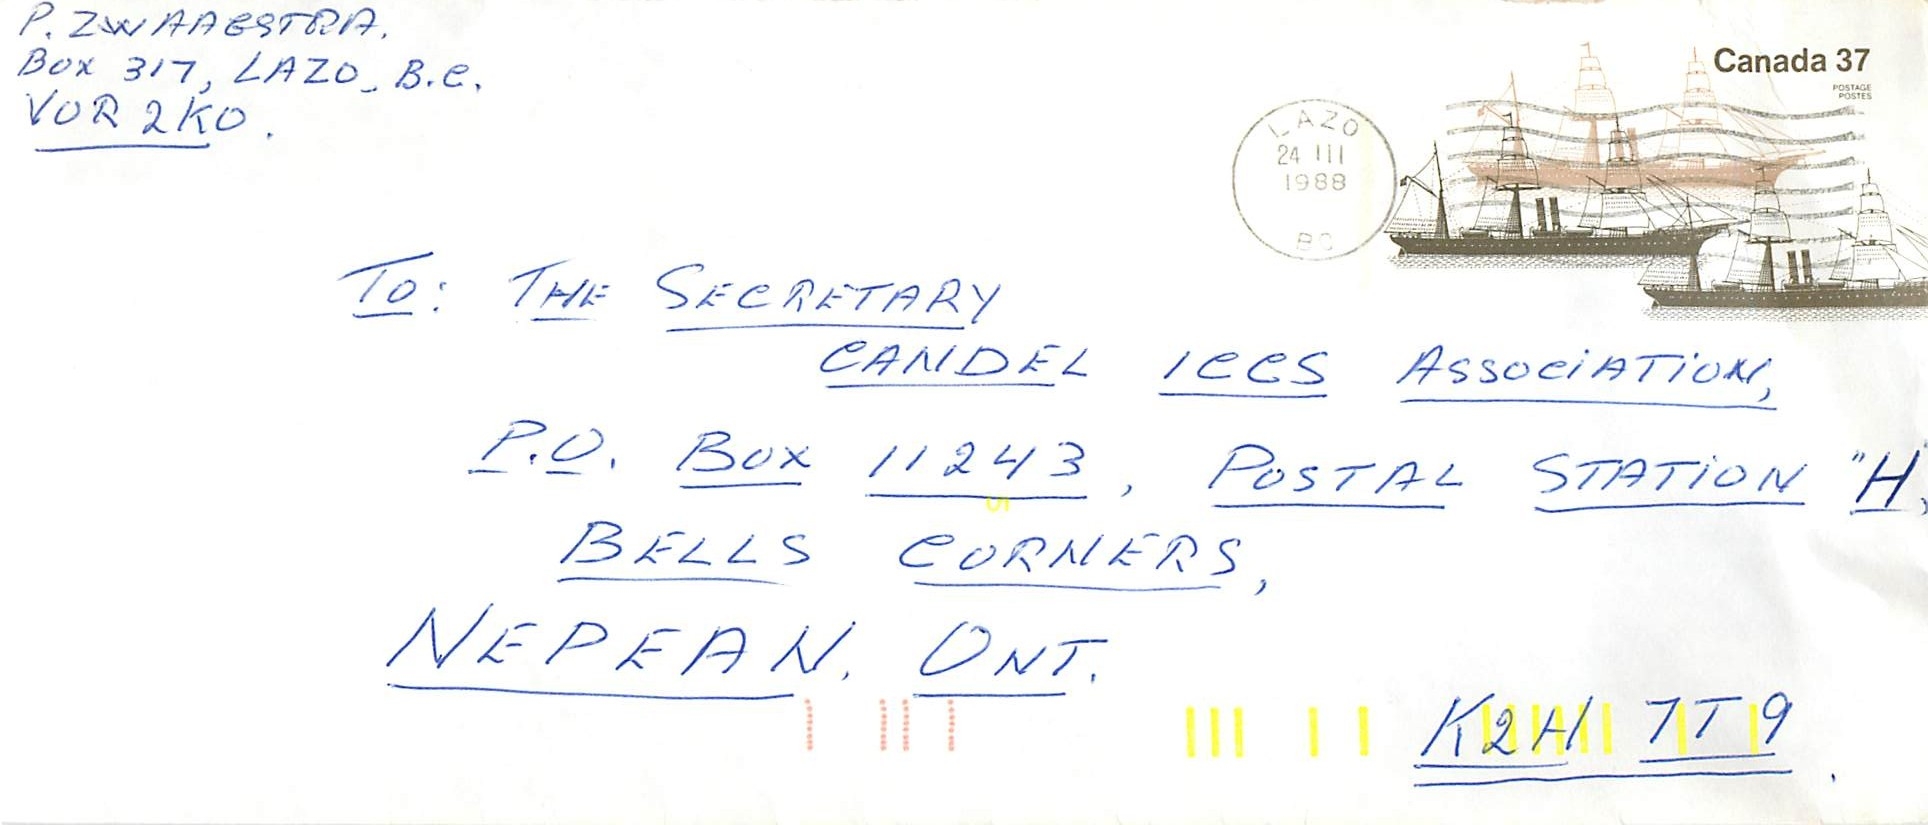 P. ZWAAGSTRA.
Box 317, LAZO, B.C.
V0R 2K0.
Canada 37
POSTAGE
POSTES
LAZO
24 III
1988
BC
To: THE SECRETARY
CANDEL ICCS ASSOCIATION,
P.O. Box 11243, POSTAL STATION "H,
BELLS CORNERS,
NEPEAN. ONT.
K2H 7T9.